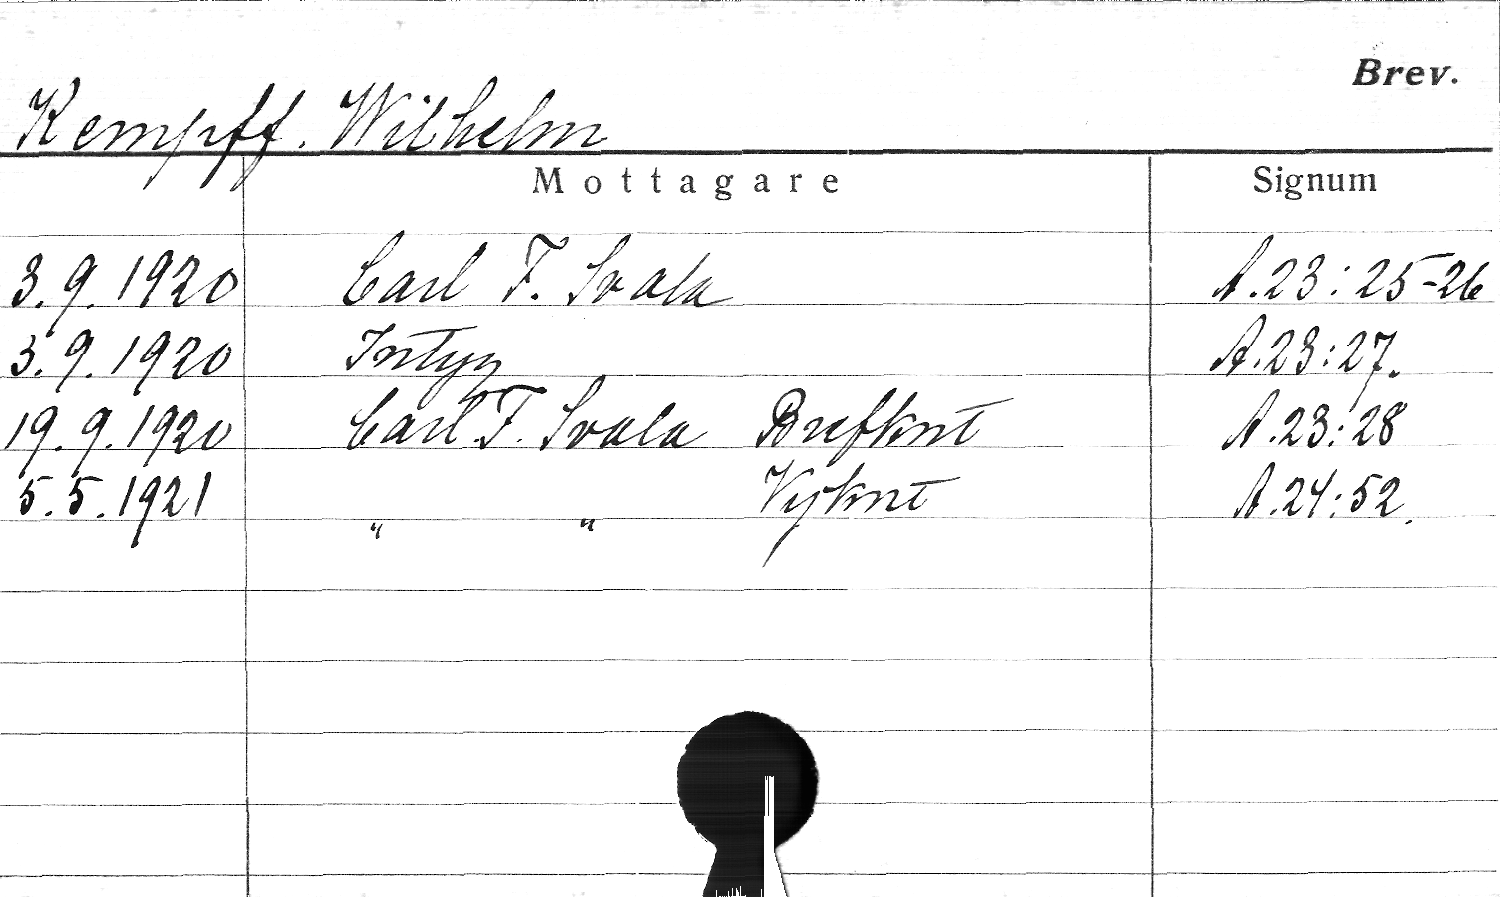 Brev.
Kempff. Wilhelm
Mottagare Signum
3.9.1920 Carl F. Svala A.23:25-26
3.9.1920 Intyg A.23:27.
19.9.1920 Carl F. Svala Brefkort A.23:28
5.5.1921 " " Vykort A.24:52.